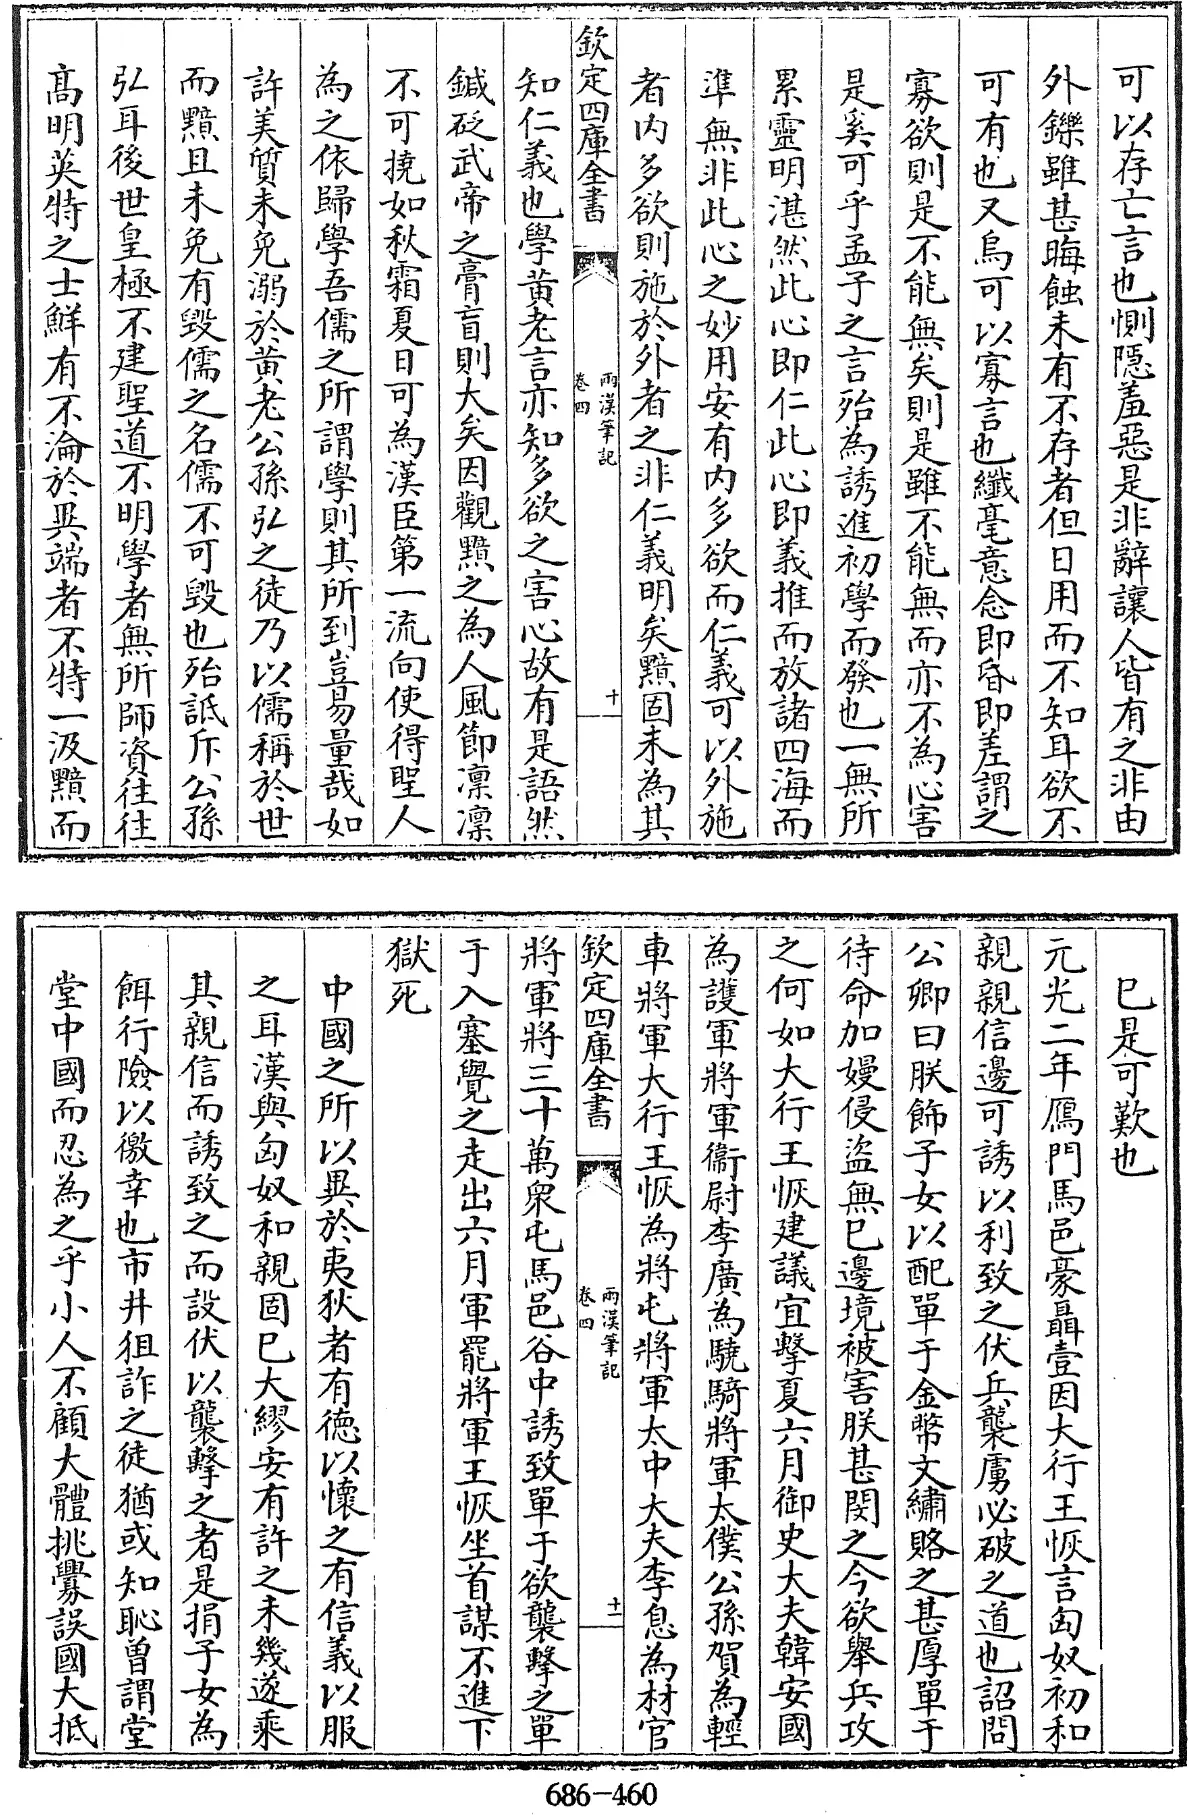 可以存亡言也惻隠羞惡是非辭讓人皆有之非由
外鑠雖甚晦蝕未有不存者但日用而不知耳欲不
可有也又烏可以寡言也纎毫意念即昏即差謂之
寡欲則是不能無矣則是雖不能無而亦不為心害
是奚可乎孟子之言殆為誘進初學而發也一無所
累靈明湛然此心即仁此心即義推而放諸四海而
準無非此心之妙用安有内多欲而仁義可以外施
者内多欲則施於外者之非仁義明矣黯固未為其
欽定四庫全書
兩漢筆記
卷四
十
知仁義也學黄老言亦知多欲之害心故有是語然
鍼砭武帝之膏盲則大矣因觀黯之為人風節凛凛
不可撓如秋霜夏日可為漢臣第一流向使得聖人
為之依歸學吾儒之所謂學則其所到豈易量哉如
許美質未免溺於黄老公孫弘之徒乃以儒稱於世
而黯且未免有毀儒之名儒不可毀也殆詆斥公孫
弘耳後世皇極不建聖道不明學者無所師資往往
髙明英特之士鮮有不淪於異端者不特一汲黯而
已是可歎也
元光二年鴈門馬邑豪聶壹因大行王恢言匈奴初和
親親信邊可誘以利致之伏兵襲虜必破之道也詔問
公卿曰朕飾子女以配單于金幣文繡賂之甚厚單于
待命加嫚侵盜無已邊境被害朕甚閔之今欲舉兵攻
之何如大行王恢建議宜擊夏六月御史大夫韓安國
為護軍將軍衞尉李廣為驍騎將軍太僕公孫賀為輕
車將軍大行王恢為將屯將軍太中大夫李息為材官
欽定四庫全書
兩漢筆記
卷四
十一
將軍將三十萬衆屯馬邑谷中誘致單于欲襲擊之單
于入塞覺之走出六月軍罷將軍王恢坐首謀不進下
獄死
中國之所以異於夷狄者有德以懷之有信義以服
之耳漢與匈奴和親固已大繆安有許之未幾遂乘
其親信而誘致之而設伏以襲擊之者是捐子女為
餌行險以徼幸也市井狙詐之徒猶或知恥曾謂堂
堂中國而忍為之乎小人不顧大體挑釁誤國大抵
686-460